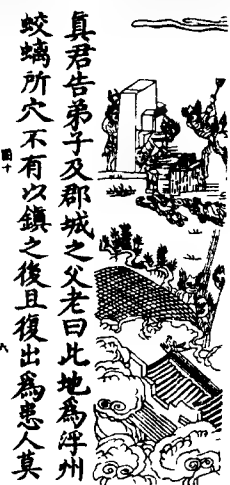 真君告弟子及郡城之父老曰此地為浮州
蛟螭所穴不有以鎮之後且復出為患人莫
圖十
六